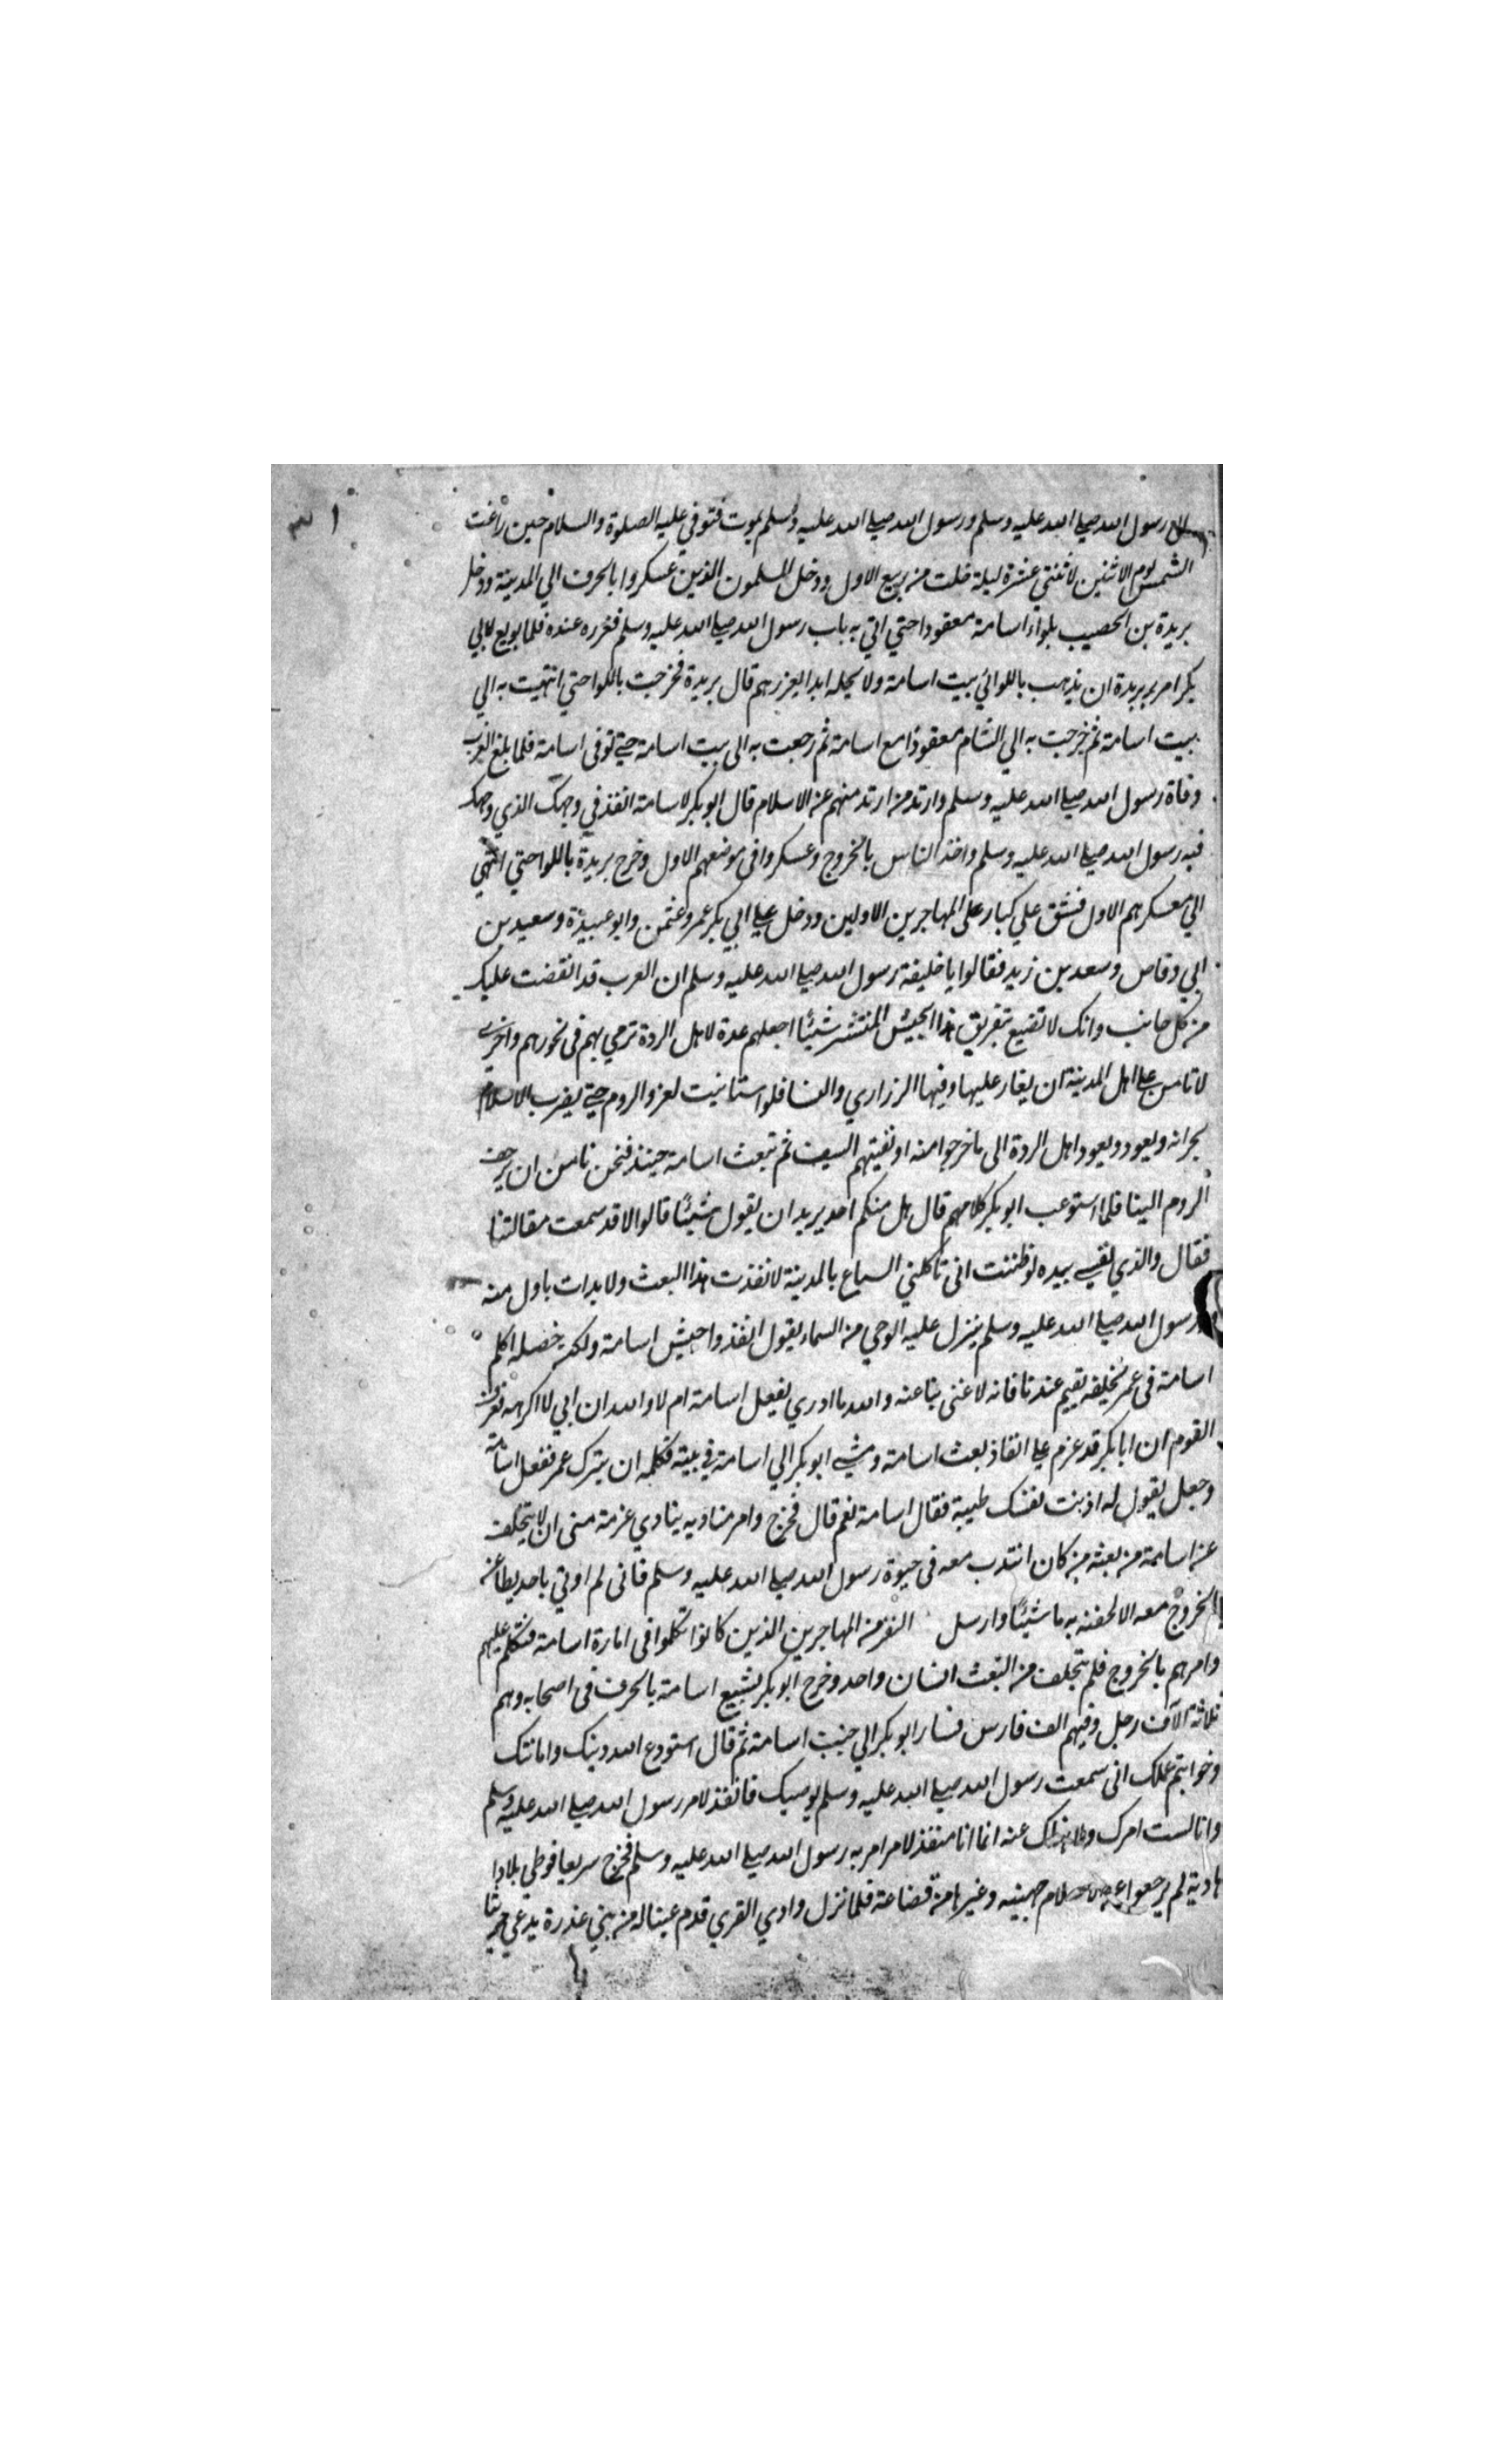 الي رسول الله صلي الله عليه وسلم ورسول الله صلي الله عليه وسلم يموت فتوفي عليه الصلوة والسلام حين زاغت
الشمس يوم الاثنين لاثنتي عشرة ليلة خلت من ربيع الاول ودخل المسلمون الذين عسكروا بالحرف الي المدينة ودخل
بريدة بن الحصيب بلواء اسامة معقودا حتي اتي به باب رسول الله صلي الله عليه وسلم فغرره عنده فلما بويع لابي
بكر امر بريدة ان يذهب باللوا الي بيت اسامة ولا يحله ابدا يعزرهم قال بريدة فخرجت باللوا حتي انتهيت به الي
بيت اسامة ثم خرجت به الي الشام معقودا مع اسامة ثم رجعت به الى بيت اسامة حتي توفى اسامة فلما بلغ العرب
وفاة رسول الله صلي الله عليه وسلم وارتد من ارتد منهم عن الاسلام قال ابو بكر لاسامة انفذ في وجهك الذي وجهك
فيه رسول الله صلي الله عليه وسلم واخذ الناس بالخروج وعسكروا في موضعهم الاول وخرج بريدة باللوا حتي انتهي
الي معسكرهم الاول فشق علي كبار علي المهاجرين الاولين ودخل علي ابي بكر عمر وعثمن وابو عبيدة وسعيد بن
ابي وقاص وسعد بن زيد فقالوا يا خليفة رسول الله صلي الله عليه وسلم ان العرب قد انقضت عليك
من كل جانب وانك لا تصنع بتفريق هذا الجيش المنتشر شيئا اجعلهم عدة لاهل الردة ترمي بهم في نحورهم واخرى
لا تامن علي اهل المدينة ان يغار عليها وفيها الزراري والنسا فلو استانيت لغزو الروم حتي يضرب الاسلام
بجرانه ويعود ويعود اهل الردة الى ما خرجوا منه او يفنيهم السيف ثم تبعث اسامة حينئذ فنحن نامن ان يرجف
الروم الينا فلما استوعب ابو بكر كلامهم قال هل منكم احد يريد ان يقول شيئا قالوا لا قد سمعت مقالتنا
فقال والذي نفسي بيده لو ظننت انى تاكلني السباع بالمدينة لانفذت هذا البعث ولا بدات باول منه
ورسول الله صلي الله عليه وسلم ينزل عليه الوحي من السماء يقول انفذوا جيش اسامة ولكن خصله اكلم
اسامة في عمر يخليفه يقيم عندنا فانه لا غنى بنا عنه والله ما ادري يفعل اسامة ام لا والله ان ابي لا اكرهه فعرف
القوم ان ابا بكر قد عزم علي انفاذ بعث اسامة ومشي ابو بكر الي اسامة في بيته فكلمه ان يترك عمر ففعل اسامة
وجعل يقول له اذنت نفسك طيبة فقال اسامة نعم قال فخرج وامر مناديه ينادي عزمة منى ان لا يتخلف
عن اسامة من بعثه من كان انتدب معه في حيوة رسول الله صلي الله عليه وسلم فانى لم اوتي باحد بطا عن
الخروج معه الا لحقته به ماشيئا وارسل النفر من المهاجرين الذين كانوا تكلموا في امارة اسامة فتكلم عليهم
وامرهم بالخروج فلم يتخلف من البعث انسان واحد وخرج ابو بكر لشييع اسامة بالحرف في اصحابه وهم
ثلاثة الآف رجل وفيهم الف فارس فسار ابو بكر الي جنب اسامة ثم قال استودع الله دينك وامانتك
وخواتيم عملك انى سمعت رسول الله صلي الله عليه وسلم يوصيك فانفذ لامر رسول الله صلي الله عليه وسلم
وانا لست امرك ولا انهاك عنه انما انا منفذ لامر امر به رسول الله صلي الله عليه وسلم فخرج سريعا فوطي بلادا
هادية لم يرجعوا عن الاسلام جهينه وغيرها من قضاعة فلما نزل وادي القري قدم عينا له من بني عذرة يدعي حريثا